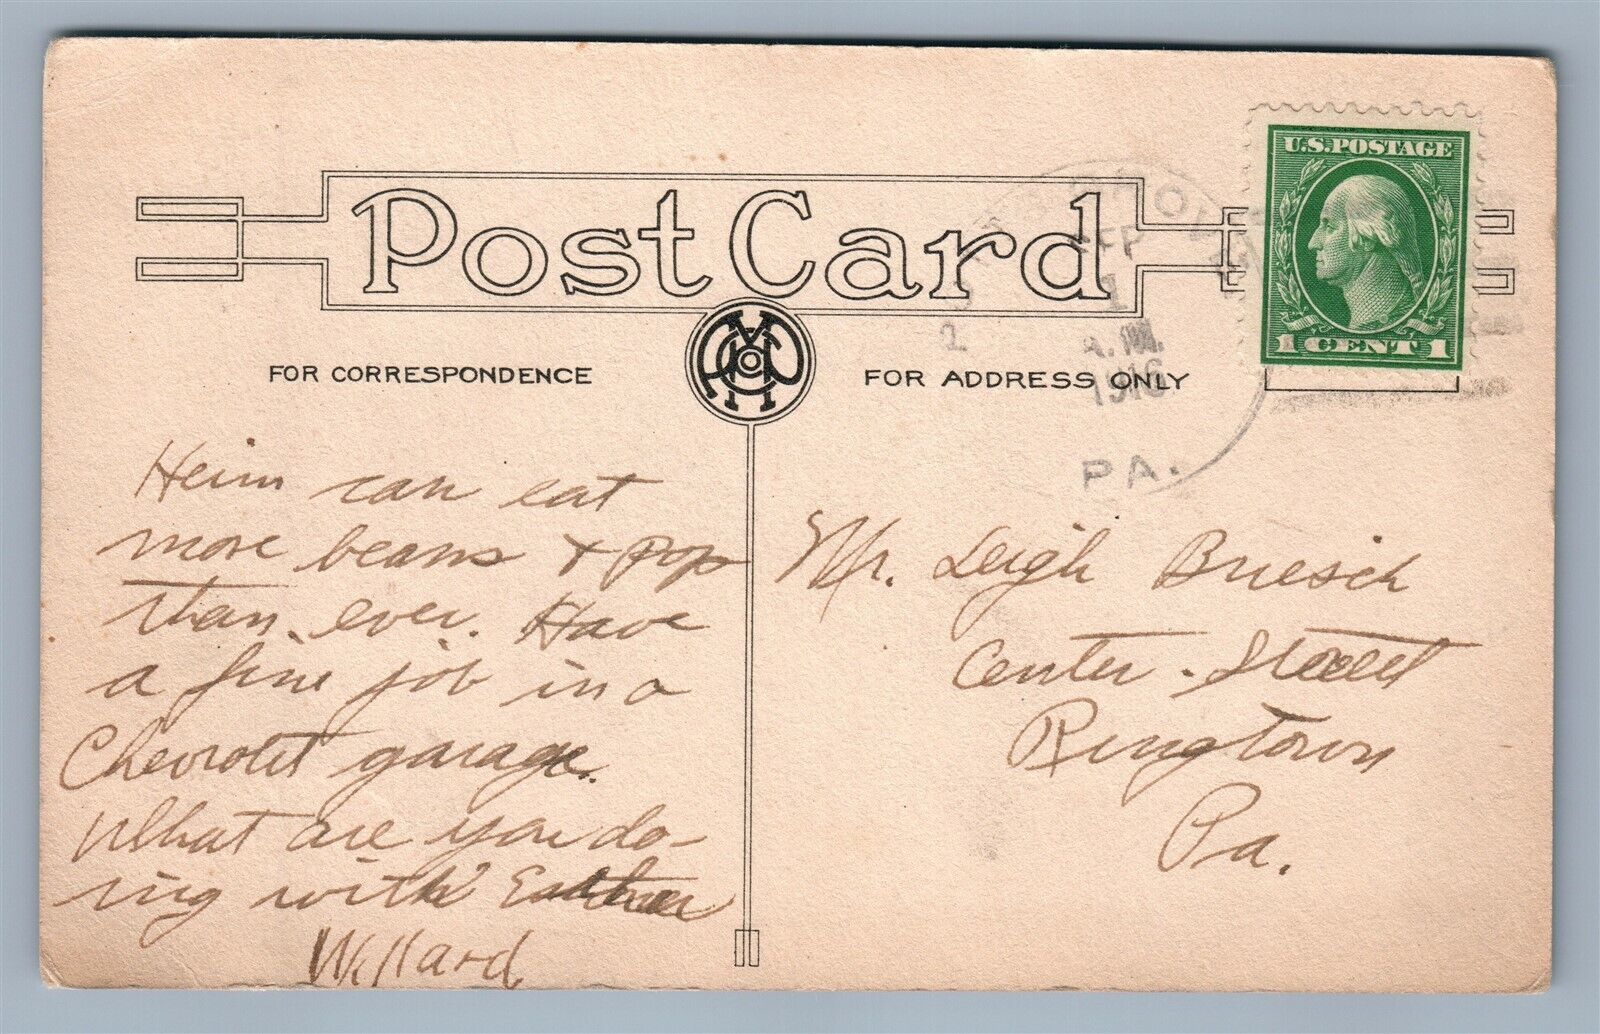 Post Card
FOR CORRESPONDENCE
FOR ADDRESS ONLY
U.S. POSTAGE
1 CENT 1
SEP
1
A.M.
1916
PA.
Heim can eat
more beans + pop
than ever. Have
a fine job in a
Chevrolet garage.
What are you do-
ing with Esther
Willard
Mr. Leigh Briesch
Center Street
Ringtown
Pa.